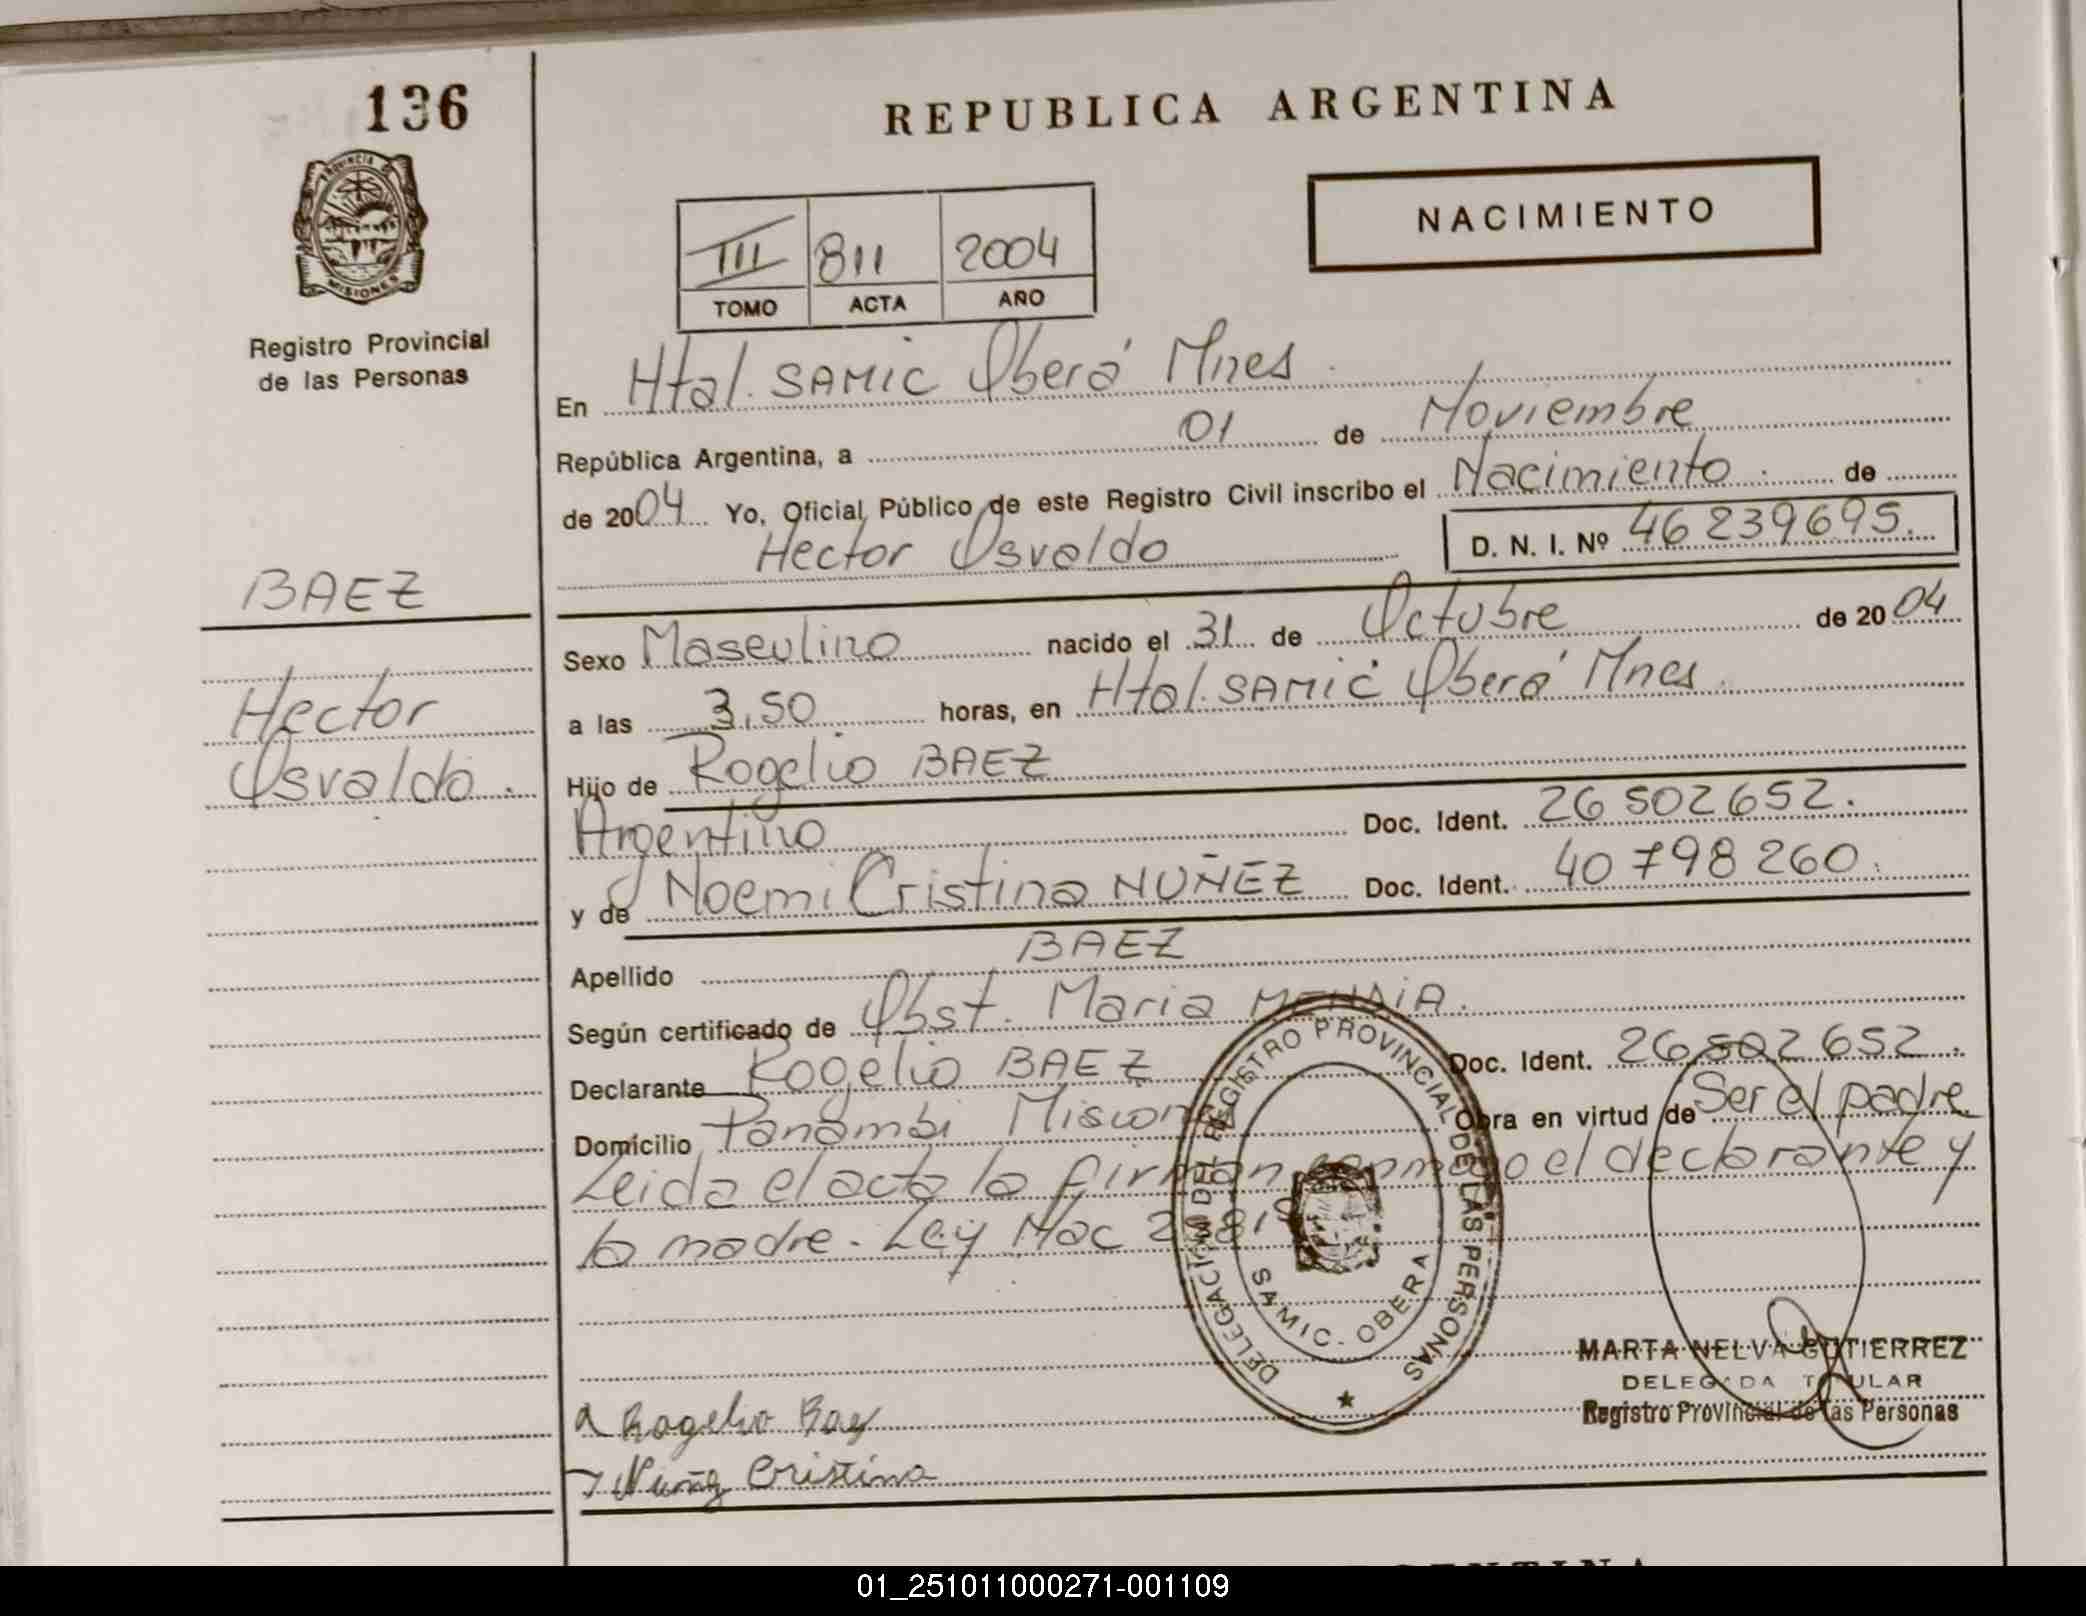 136
REPUBLICA ARGENTINA
PROVINCIA
MISIONES
Registro Provincial
de las Personas
NACIMIENTO
III 811 2004
TOMO ACTA AÑO
En Htal. SAMIC Oberá Mnes.
República Argentina, a 01 de Noviembre
de 2004 Yo, Oficial Público de este Registro Civil inscribo el Nacimiento de
Hector Osvaldo D. N. I. Nº 46 239695.
BAEZ
Hector
Osvaldo.
Sexo Masculino nacido el 31 de Octubre de 2004
a las 3,50 horas, en Htal. SAMIC Oberá Mnes.
Hijo de Rogelio BAEZ
Argentino Doc. Ident. 26 502652.
y de Noemi Cristina NUÑEZ Doc. Ident. 40 798 260.
Apellido BAEZ
Según certificado de Obst. Maria
Declarante Rogelio BAEZ Doc. Ident. 26 502 652.
Domicilio Panambi Obra en virtud de Ser el padre
Leida el acta la firman el declarante y
la madre. Ley Nac
DELEGACION DEL REGISTRO PROVINCIAL DE LAS PERSONAS
SAMIC. OBERA
MARTA NELVA GUTIERREZ
DELEGADA TITULAR
Registro Provincial de las Personas
Rogelio Baez
Nuñez Cristina
01_251011000271-001109